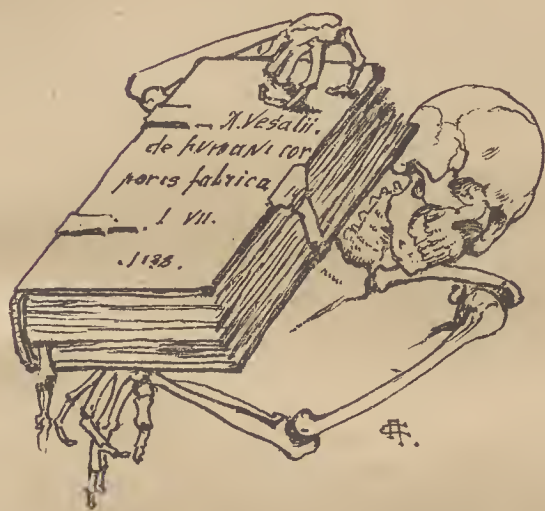 A. Vesalii.
de humani cor
poris fabrica
l VII.